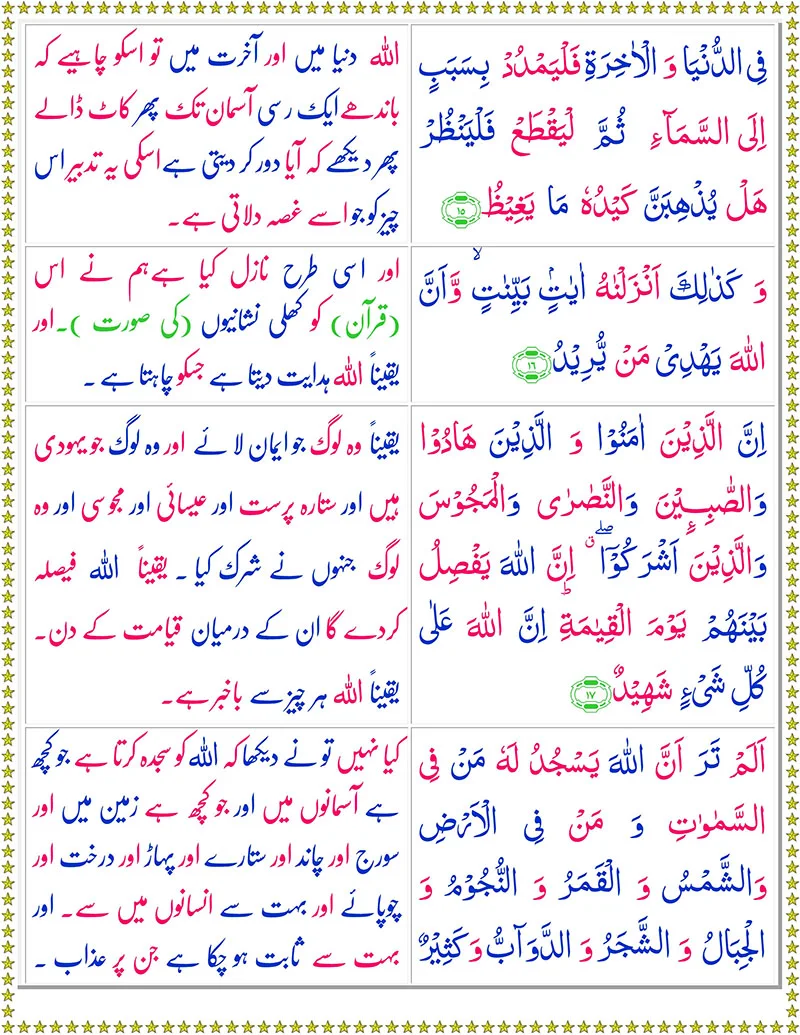 فِی الدُّنْیَا وَ الْاٰخِرَةِ فَلْیَمْدُدْ بِسَبَبٍ
اِلَی السَّمَآءِ ثُمَّ لْیَقْطَعْ فَلْیَنْظُرْ
هَلْ یُذْهِبَنَّ کَیْدُهٗ مَا یَغِیْظُ ﴿۱۵﴾
اللہ دنیا میں اور آخرت میں تو اسکو چاہیے کہ
باندھے ایک رسی آسمان تک پھر کاٹ ڈالے
پھر دیکھے کہ آیا دور کر دیتی ہے اسکی یہ تدبیر اس
چیز کو جو اسے غصہ دلاتی ہے۔
وَ کَذٰلِكَ اَنْزَلْنٰهُ اٰیٰتٍۭ بَیِّنٰتٍ ۙ وَّاَنَّ
اللهَ یَهْدِیْ مَنْ یُّرِیْدُ ﴿۱۶﴾
اور اسی طرح نازل کیا ہے ہم نے اس
(قرآن) کو کھلی نشانیوں (کی صورت )۔اور
یقیناً اللہ ہدایت دیتا ہے جسکو چاہتا ہے ۔
اِنَّ الَّذِیْنَ اٰمَنُوْا وَ الَّذِیْنَ هَادُوْا
وَالصّٰبِـِٕیْنَ وَالنَّصٰرٰی وَالْمَجُوْسَ
وَالَّذِیْنَ اَشْرَکُوْۤا ۖۗ اِنَّ اللهَ یَفْصِلُ
بَیْنَهُمْ یَوْمَ الْقِیٰمَةِ ؕ اِنَّ اللهَ عَلٰی
کُلِّ شَیْءٍ شَهِیْدٌ ﴿۱۷﴾
یقیناً وہ لوگ جو ایمان لائے اور وہ لوگ جو یہودی
ہیں اور ستارہ پرست اور عیسائی اور مجوسی اور وہ
لوگ جنہوں نے شرک کیا ۔ یقیناً اللہ فیصلہ
کردے گا ان کے درمیان قیامت کے دن۔
یقیناً اللہ ہر چیز سے باخبر ہے۔
اَلَمْ تَرَ اَنَّ اللهَ یَسْجُدُ لَهٗ مَنْ فِی
السَّمٰوٰتِ وَ مَنْ فِی الْاَرْضِ
وَالشَّمْسُ وَ الْقَمَرُ وَ النُّجُوْمُ وَ
الْجِبَالُ وَ الشَّجَرُ وَ الدَّوَآبُّ وَ کَثِیْرٌ
کیا نہیں تو نے دیکھا کہ اللہ کو سجدہ کرتا ہے جو کچھ
ہے آسمانوں میں اور جو کچھ ہے زمین میں اور
سورج اور چاند اور ستارے اور پہاڑ اور درخت اور
چوپائے اور بہت سے انسانوں میں سے۔ اور
بہت سے ثابت ہو چکا ہے جن پر عذاب ۔